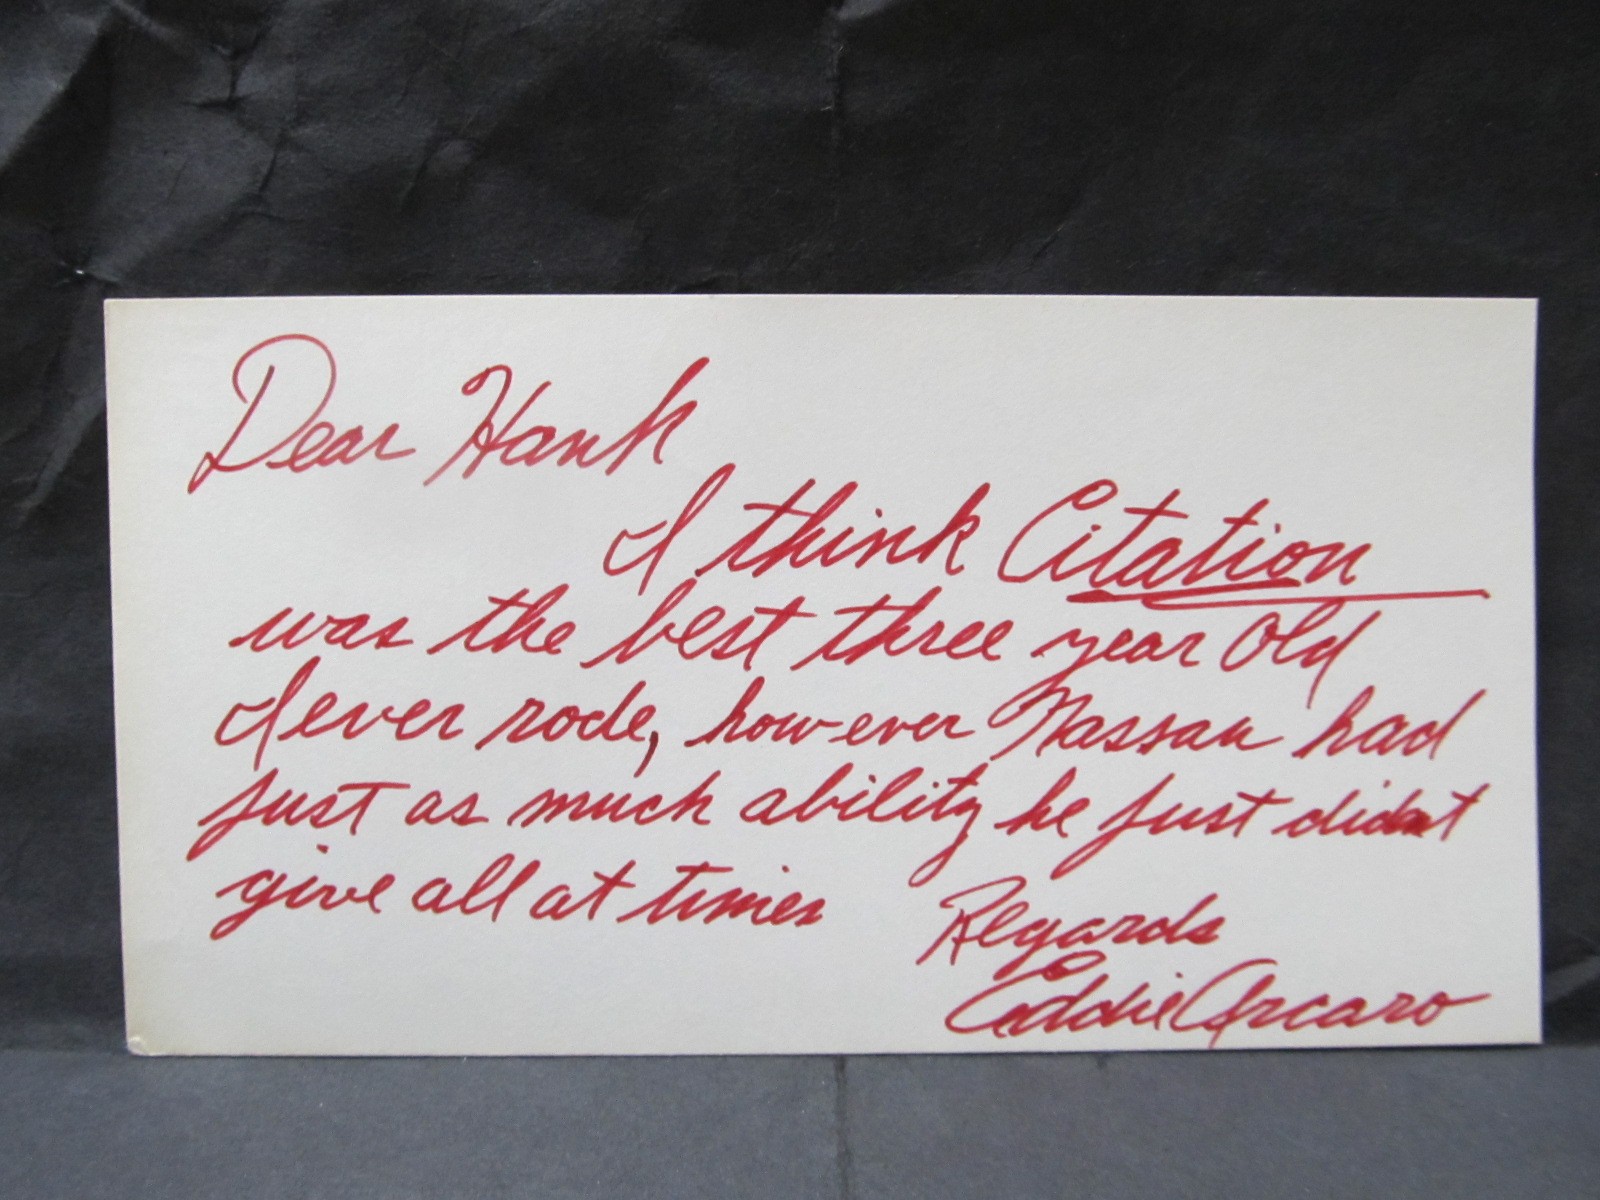 Dear Hank
I think Citation
was the best three year old
I ever rode, however Nassau had
just as much ability he just didnt
give all at times
Regards
Eddie Arcaro